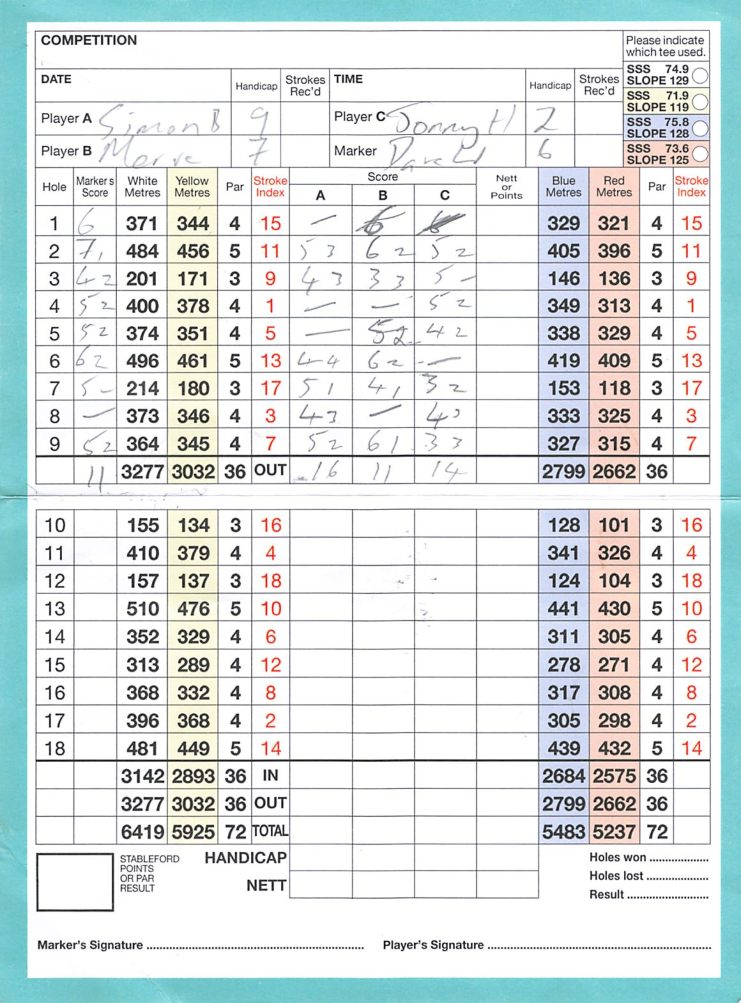 COMPETITION
Please indicate which tee used.
DATE Handicap Strokes Rec'd TIME Handicap Strokes Rec'd
SSS 74.9 SLOPE 129
SSS 71.9 SLOPE 119
SSS 75.8 SLOPE 128
SSS 73.6 SLOPE 125
Player A Simon B 9 Player C Jonny H 2
Player B Merve 7 Marker 6
Hole Marker's Score White Metres Yellow Metres Par Stroke Index Score A B C Nett or Points Blue Metres Red Metres Par Stroke Index
1 6 371 344 4 15 — 6 329 321 4 15
2 7, 484 456 5 11 5 3 6 2 5 2 405 396 5 11
3 4 2 201 171 3 9 4 3 3 3 5 - 146 136 3 9
4 5 2 400 378 4 1 — — 5 2 349 313 4 1
5 5 2 374 351 4 5 — 5 2 4 2 338 329 4 5
6 6 2 496 461 5 13 4 4 6 2 — 419 409 5 13
7 5 - 214 180 3 17 5 1 4 1 3 2 153 118 3 17
8 — 373 346 4 3 4 3 — 4 333 325 4 3
9 5 2 364 345 4 7 5 2 6 1 3 3 327 315 4 7
11 3277 3032 36 OUT 16 11 14 2799 2662 36
10 155 134 3 16 128 101 3 16
11 410 379 4 4 341 326 4 4
12 157 137 3 18 124 104 3 18
13 510 476 5 10 441 430 5 10
14 352 329 4 6 311 305 4 6
15 313 289 4 12 278 271 4 12
16 368 332 4 8 317 308 4 8
17 396 368 4 2 305 298 4 2
18 481 449 5 14 439 432 5 14
3142 2893 36 IN 2684 2575 36
3277 3032 36 OUT 2799 2662 36
6419 5925 72 TOTAL 5483 5237 72
STABLEFORD POINTS OR PAR RESULT
HANDICAP
NETT
Holes won ....................
Holes lost .....................
Result ...........................
Marker's Signature ........................................................ Player's Signature ........................................................